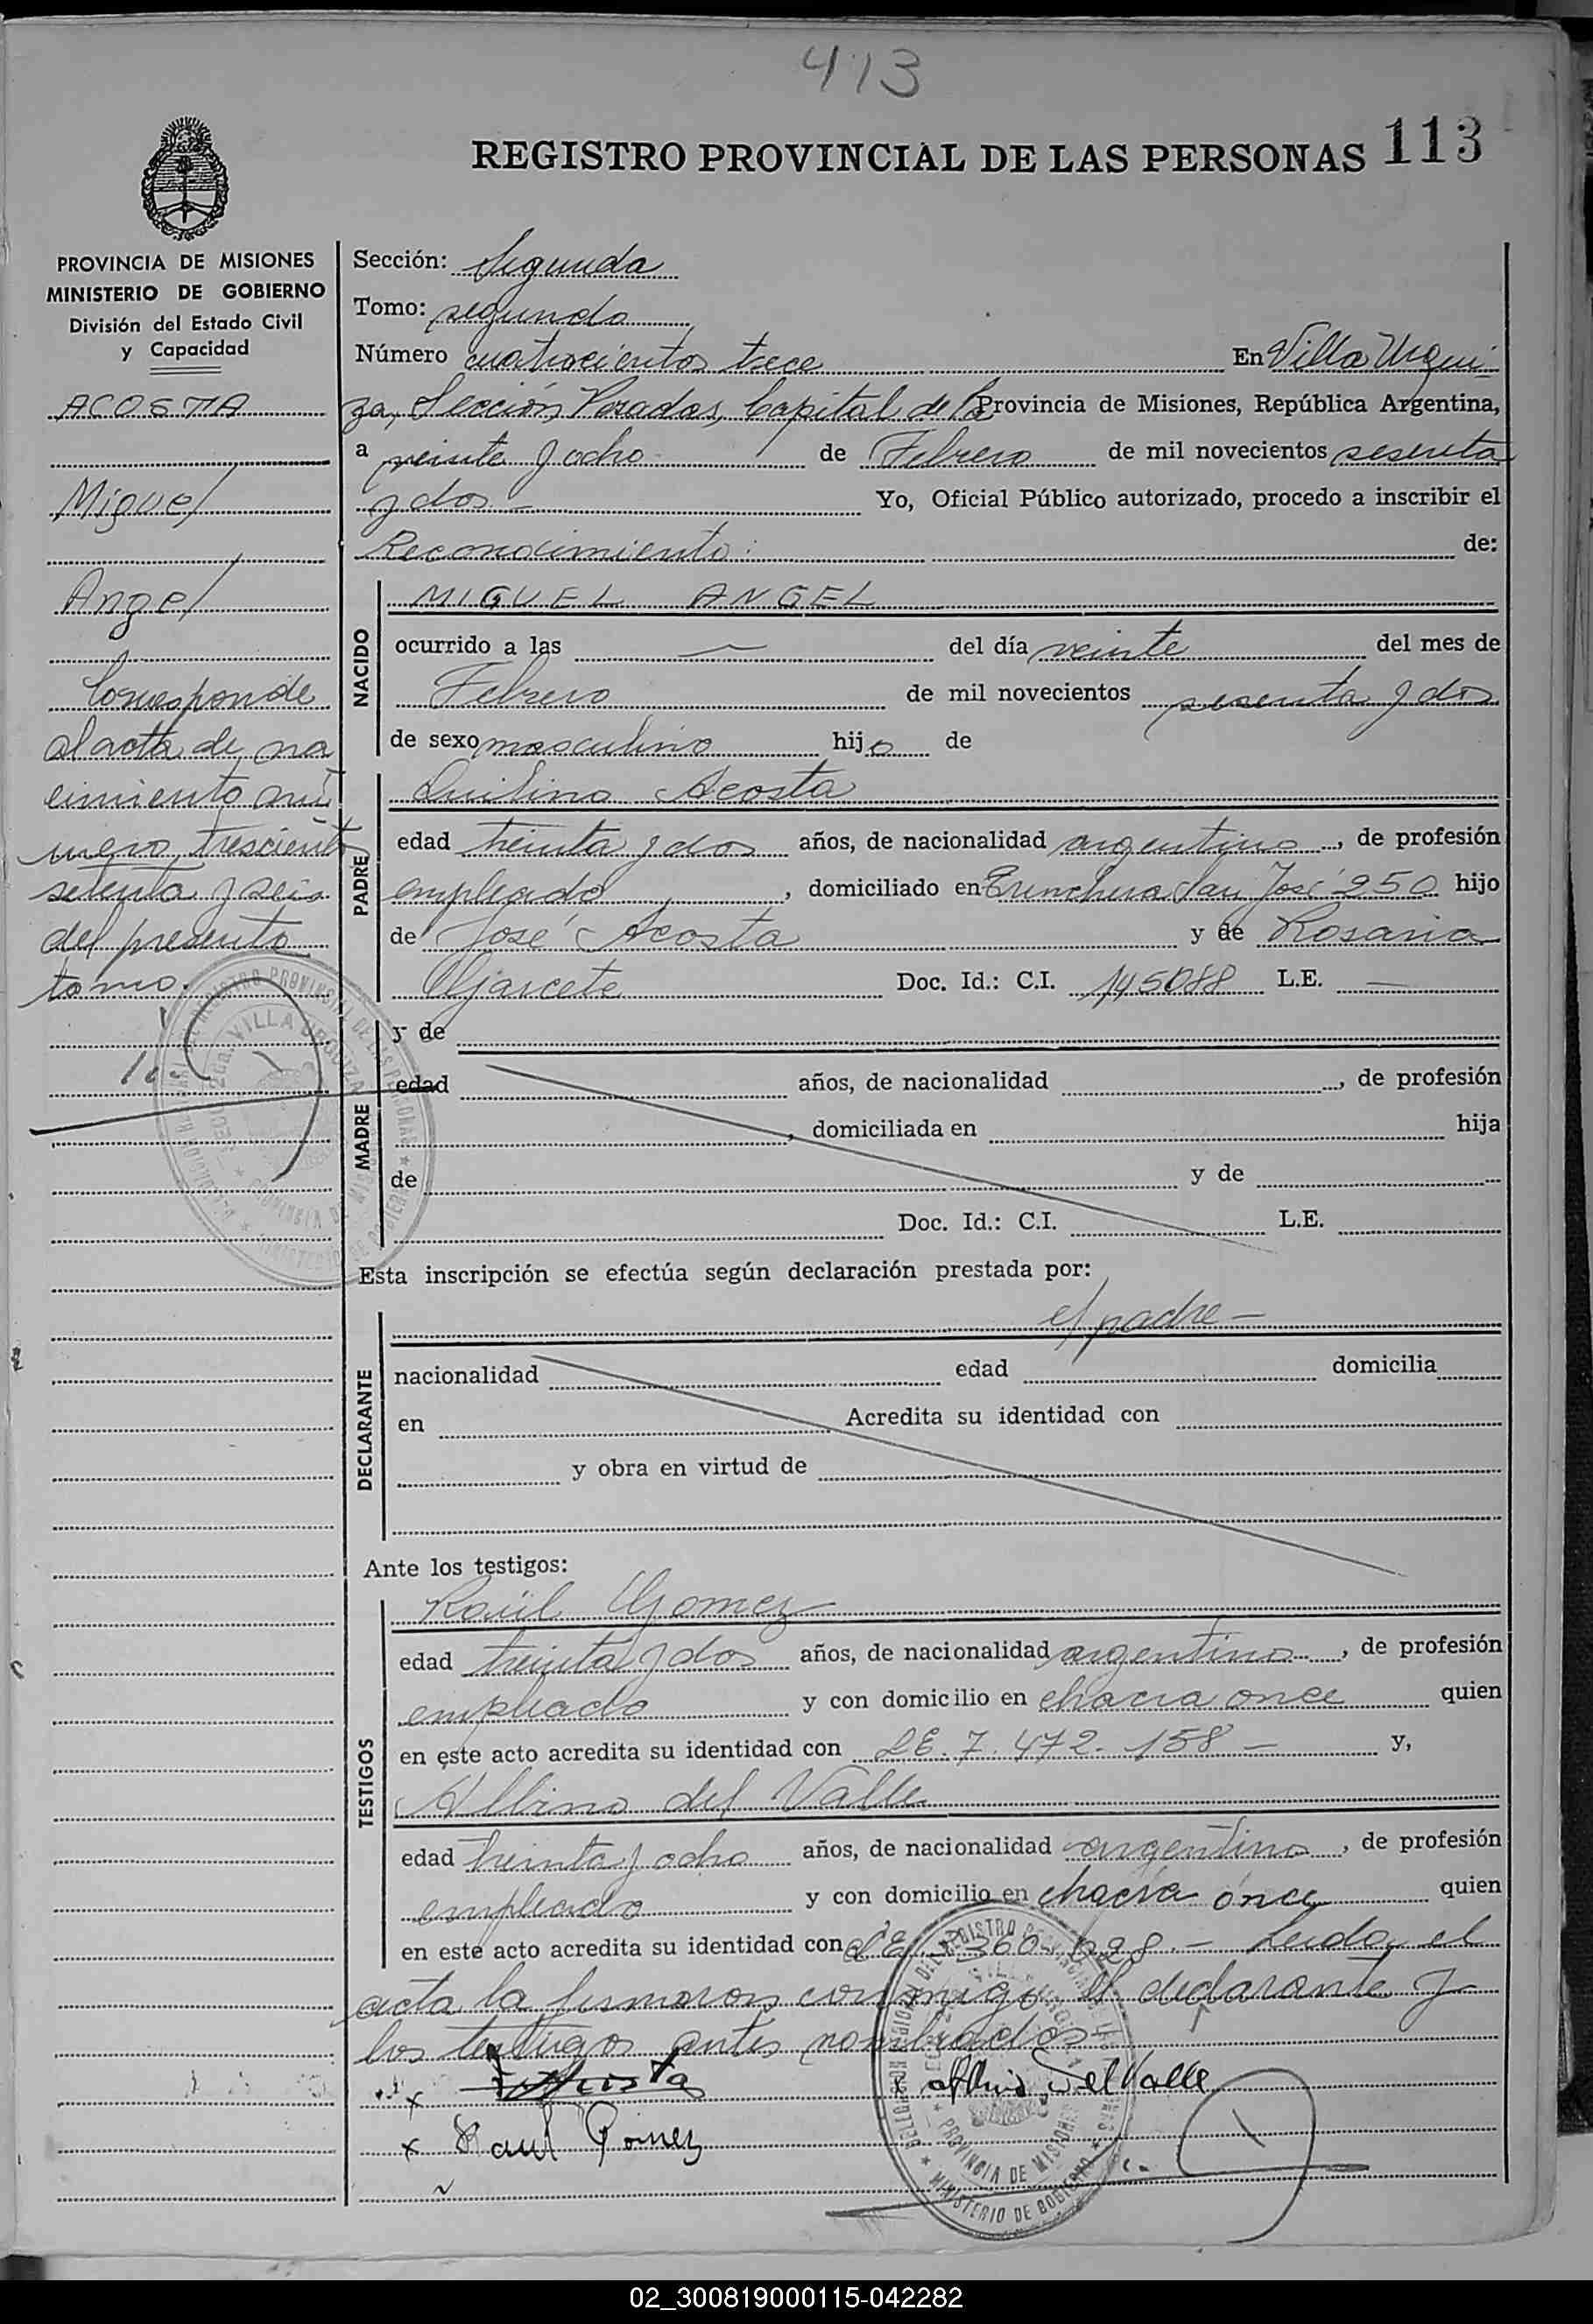 413
REGISTRO PROVINCIAL DE LAS PERSONAS 113
PROVINCIA DE MISIONES
MINISTERIO DE GOBIERNO
División del Estado Civil
y Capacidad
ACOSTA
Miguel
Angel
Corresponde
al acta de na
cimiento nú
mero trescient
setenta y seis
del presente
tomo.
Sección: Segunda
Tomo: segundo
Número cuatrocientos trece En Villa Urqui
za, Sección Posadas, Capital de la Provincia de Misiones, República Argentina,
a veinte y ocho de Febrero de mil novecientos sesenta
y dos Yo, Oficial Público autorizado, procedo a inscribir el
Reconocimiento: de:
NACIDO
MIGUEL ANGEL
ocurrido a las — del día veinte del mes de
Febrero de mil novecientos sesenta y dos
de sexo masculino hijo de
PADRE
Quilino Acosta
edad treinta y dos años, de nacionalidad argentino, de profesión
empleado, domiciliado en Trinchera San José 250 hijo
de José Acosta y de Rosaria
Gjarcete Doc. Id.: C.I. 145088 L.E. —
MADRE
y de
edad años, de nacionalidad , de profesión
, domiciliada en hija
de y de
Doc. Id.: C.I. L.E.
Esta inscripción se efectúa según declaración prestada por:
el padre —
DECLARANTE
nacionalidad edad domicilia
en Acredita su identidad con
y obra en virtud de
Ante los testigos:
TESTIGOS
Raúl Gomez
edad treinta y dos años, de nacionalidad argentino, de profesión
empleado y con domicilio en chacra once quien
en este acto acredita su identidad con LE. 7.472.158 — y,
Albino del Valle
edad treinta y ocho años, de nacionalidad argentino, de profesión
empleado y con domicilio en chacra once quien
en este acto acredita su identidad con LE. Leida el
acta la firmaron conmigo el declarante y
los testigos antes nombrados
x Acosta
Albino del Valle
x Raul Gomez
REGISTRO PROVINCIAL DE LAS PERSONAS
VILLA URQUIZA
PROVINCIA DE MISIONES
MINISTERIO DE GOBIERNO
02_300819000115-042282